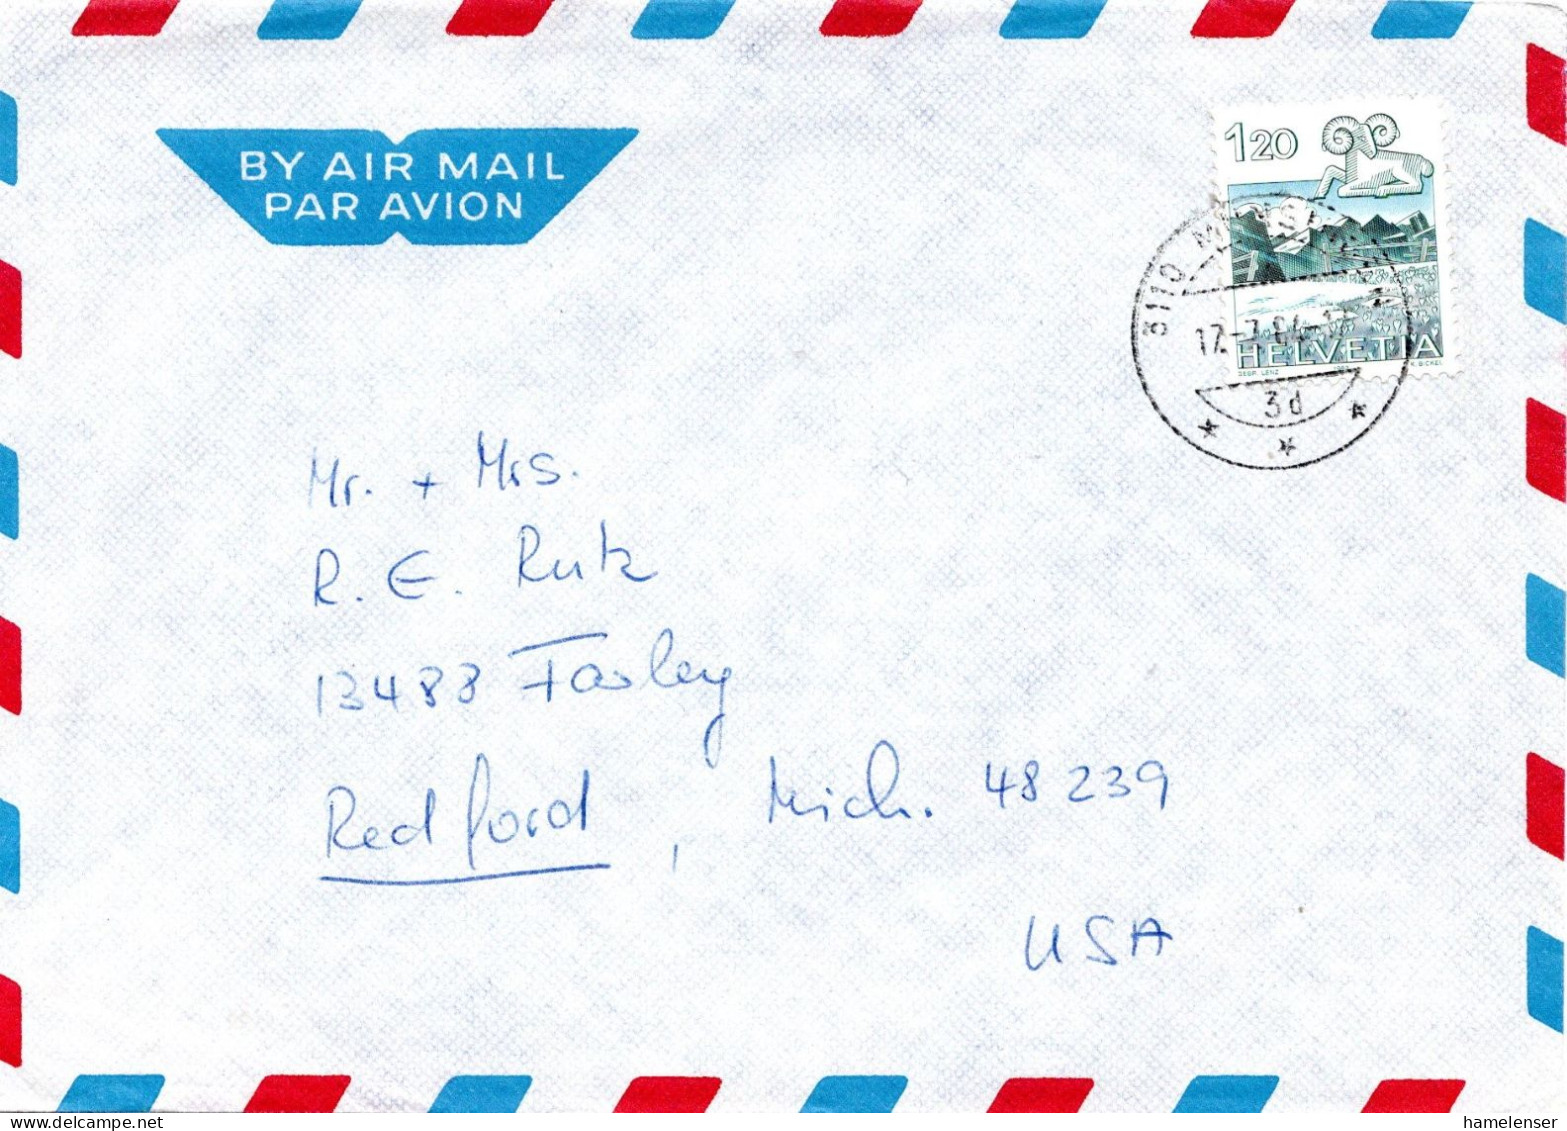 BY AIR MAIL
PAR AVION
120
HELVETIA
DESR. LENZ
K. BICKEL
3110
3d
Mr. + Mrs.
R. E. Rutz
13483 Farley
Redford, Mich. 48 239
USA
www.delcampe.net
hamelenser